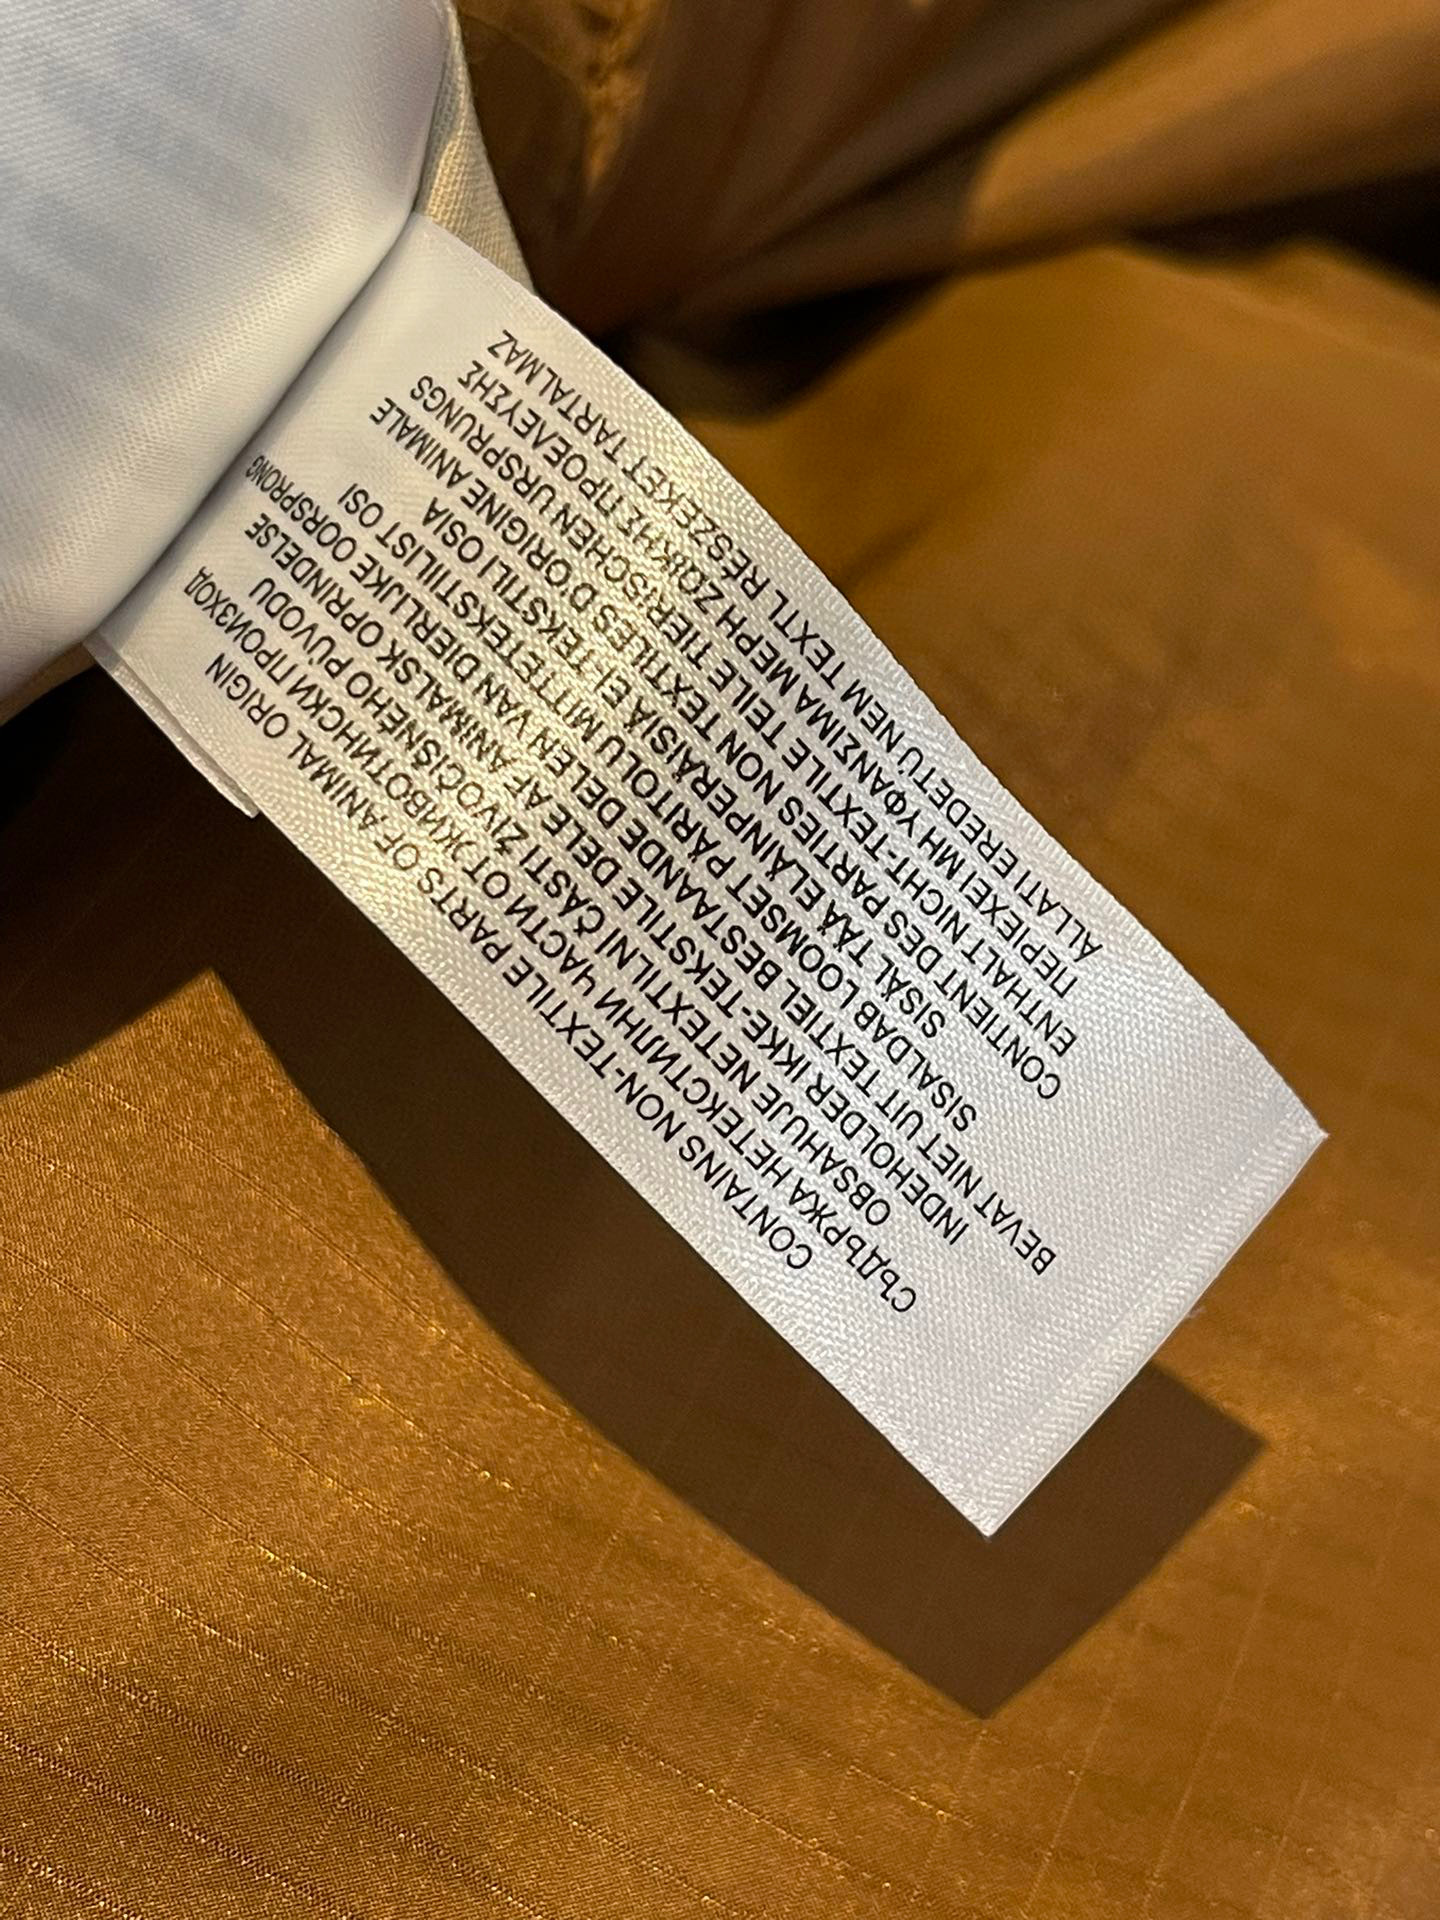 CONTAINS NON-TEXTILE PARTS OF ANIMAL ORIGIN
СЪДЪРЖА НЕТЕКСТИЛНИ ЧАСТИ ОТ ЖИВОТИНСКИ ПРОИЗХОД
OBSAHUJE NETEXTILNÍ ČÁSTI ŽIVOČIŠNÉHO PŮVODU
INDEHOLDER IKKE-TEKSTILE DELE AF ANIMALSK OPRINDELSE
BEVAT NIET UIT TEXTIEL BESTAANDE DELEN VAN DIERLIJKE OORSPRONG
SISALDAB LOOMSET PÄRITOLU MITTETEKSTIILIST OSI
SISÄLTÄÄ ELÄINPERÄISIÄ EI-TEKSTIILI OSIA
CONTIENT DES PARTIES NON TEXTILES D'ORIGINE ANIMALE
ENTHALT NICHT-TEXTILE TEILE TIERISCHEN URSPRUNGS
ΠΕΡΙΕΧΕΙ ΜΗ ΥΦΑΝΣΙΜΑ ΜΕΡΗ ΖΩΙΚΗΣ ΠΡΟΕΛΕΥΣΗΣ
ÁLLATI EREDETŰ NEM TEXTIL RÉSZEKET TARTALMAZ